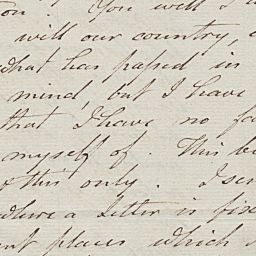 on You will
will our country,
what has passed in
mind, but I have
that I have no
myself of. This
this only. I
where a letter is
places which